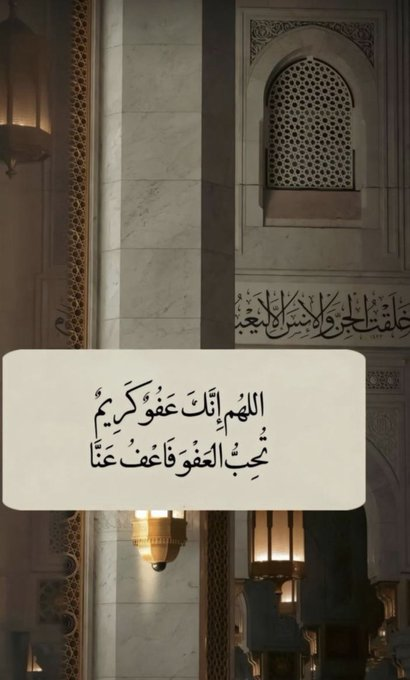 خَلَقْتُ الجِنَّ وَالانسَ الَّا لِيَعْبُ
اللهُم إِنَّكَ عَفُوٌ كَرِيمٌ
تُحِبُّ العَفْوَ فَاعْفُ عَنَّا